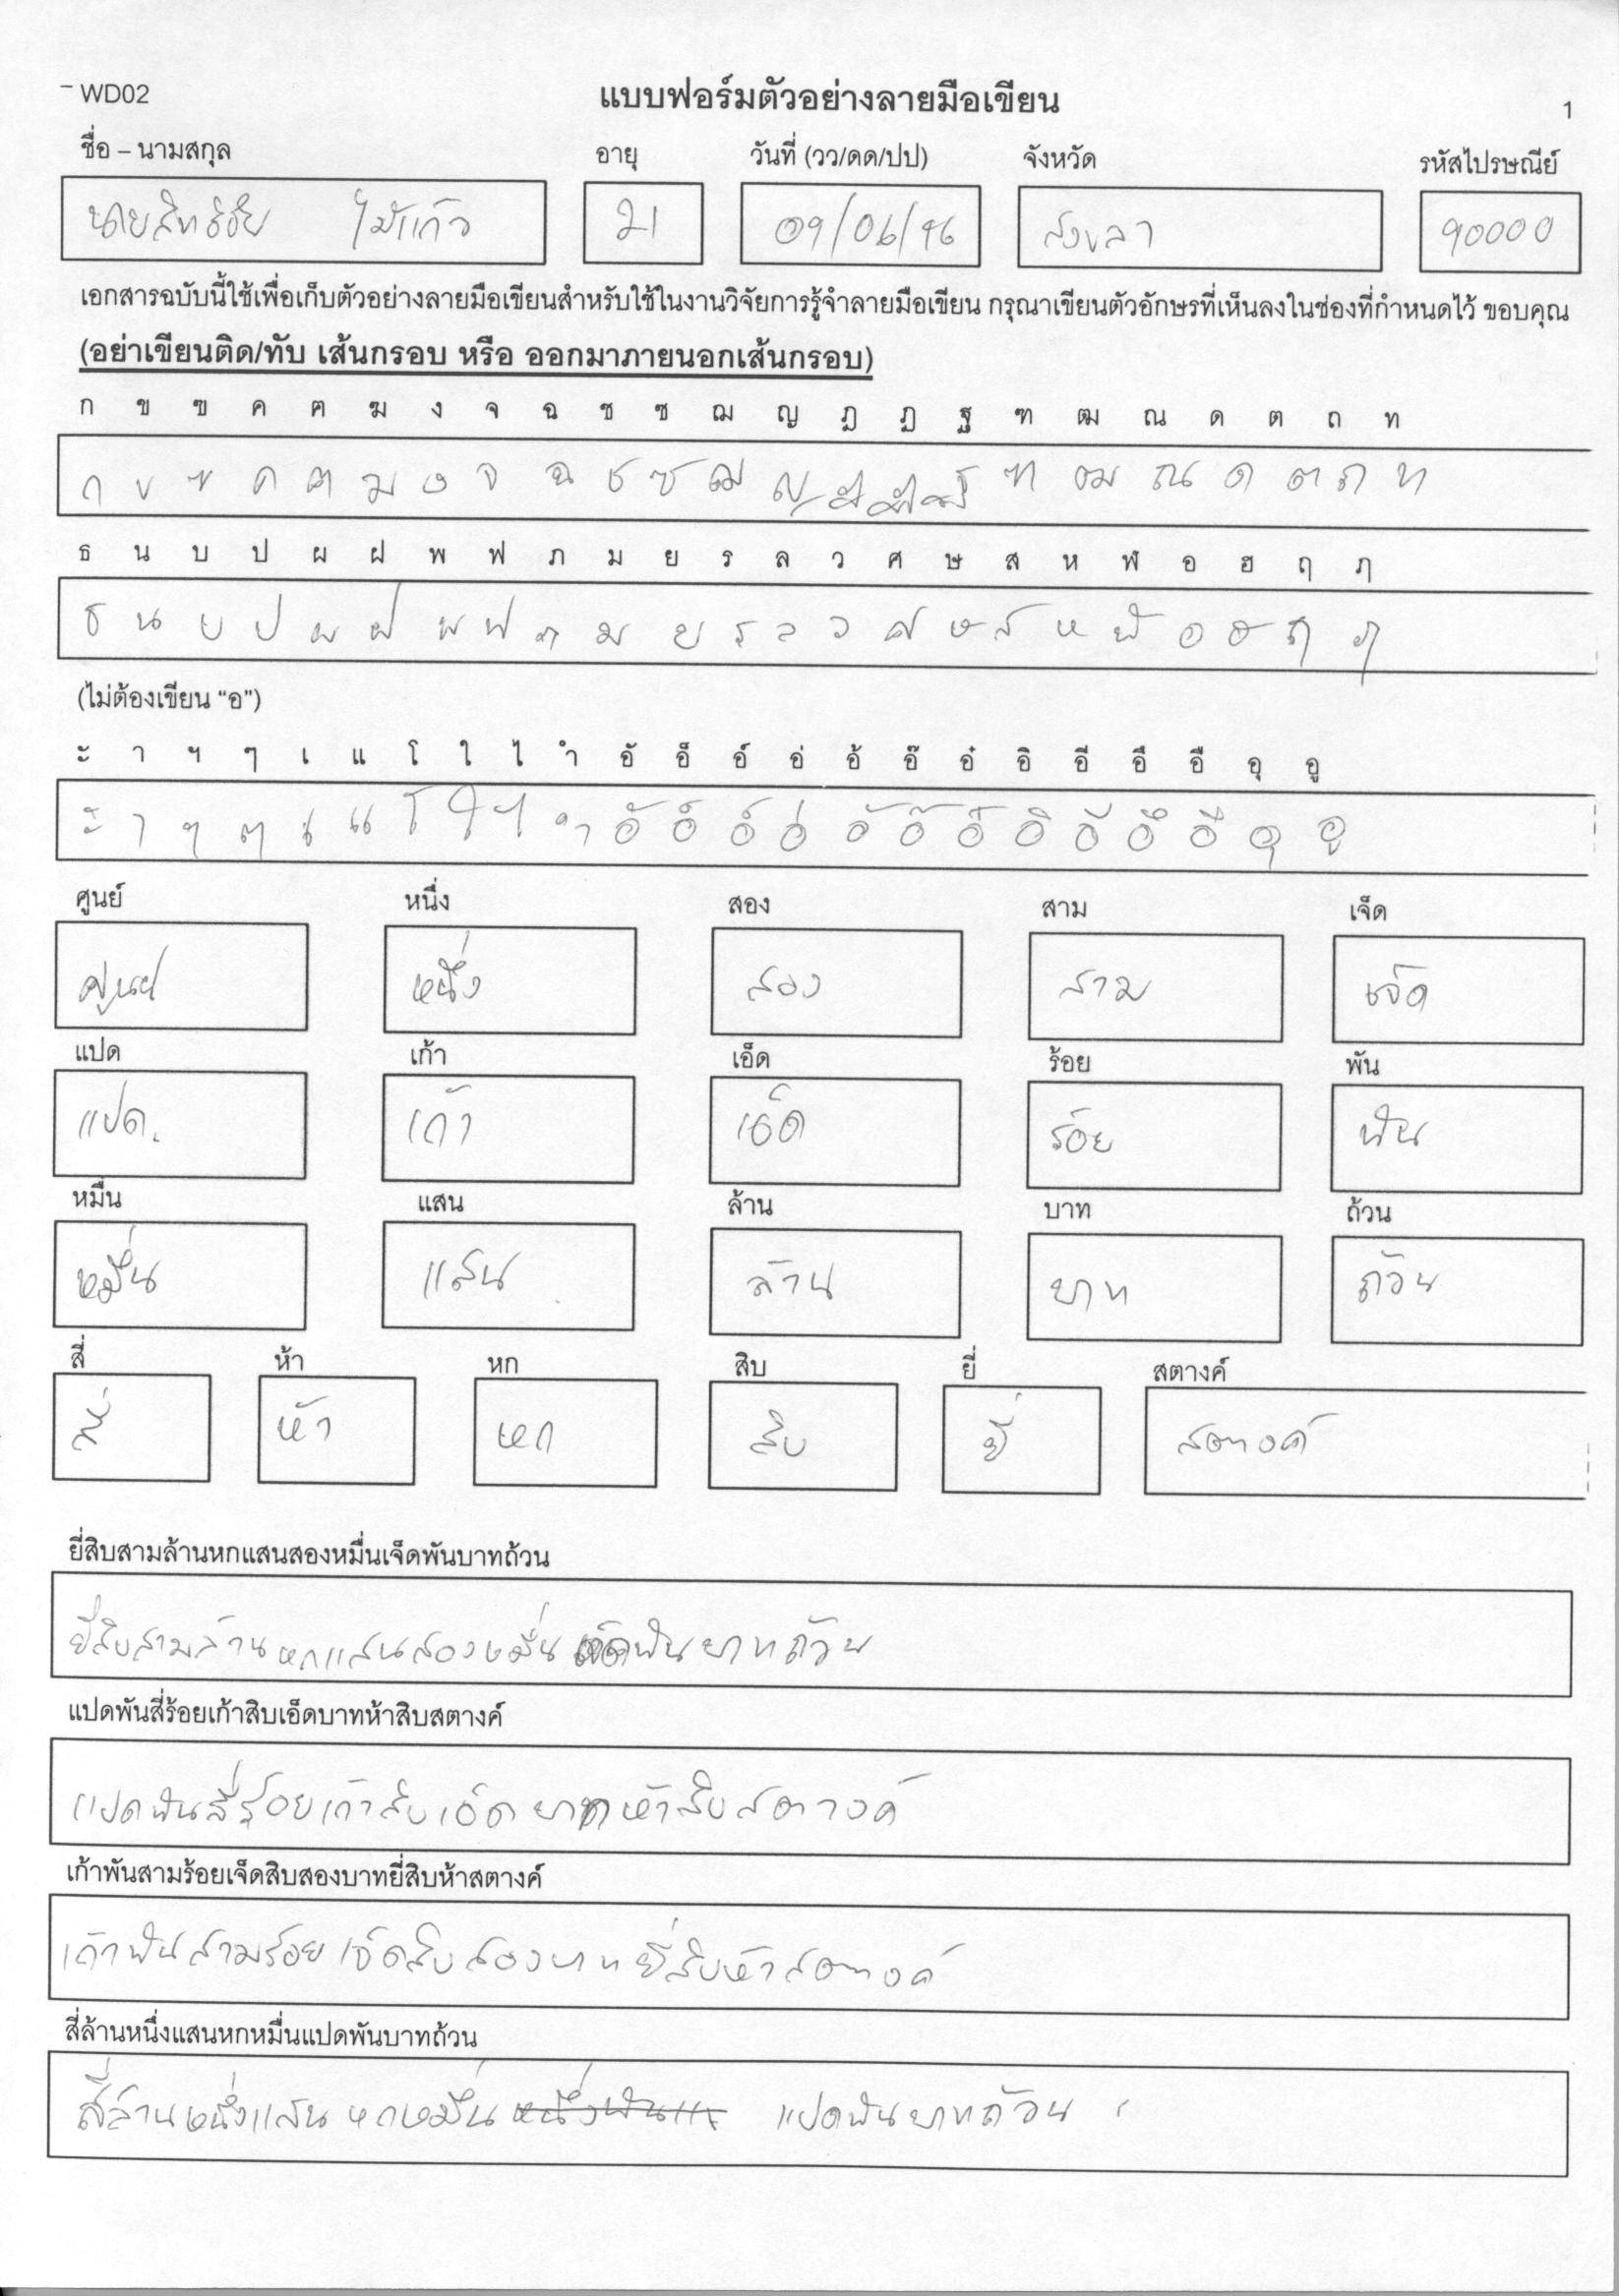 WD02 แบบฟอร์มตัวอย่างลายมือเขียน 1
ชื่อ – นามสกุล อายุ วันที่ (วว/ดด/ปป) จังหวัด รหัสไปรษณีย์
นายสิทธิชัย ไม้แก้ว 21 09/06/46 สงขลา 90000
เอกสารฉบับนี้ใช้เพื่อเก็บตัวอย่างลายมือเขียนสำหรับใช้ในงานวิจัยการรู้จำลายมือเขียน กรุณาเขียนตัวอักษรที่เห็นลงในช่องที่กำหนดไว้ ขอบคุณ
(อย่าเขียนติด/ทับ เส้นกรอบ หรือ ออกมาภายนอกเส้นกรอบ)
ก ข ฃ ค ฅ ฆ ง จ ฉ ช ซ ฌ ญ ฎ ฏ ฐ ฑ ฒ ณ ด ต ถ ท
ก ข ฃ ค ฅ ฆ ง จ ฉ ช ซ ฌ ญ ฎ ฏ ฐ ฑ ฒ ณ ด ต ถ ท
ธ น บ ป ผ ฝ พ ฟ ภ ม ย ร ล ว ศ ษ ส ห ฬ อ ฮ ฤ ฦ
ธ น บ ป ผ ฝ พ ฟ ภ ม ย ร ล ว ศ ษ ส ห ฬ อ ฮ ฤ ฦ
(ไม่ต้องเขียน “อ”)
ะ า ฯ ๆ เ แ โ ใ ไ ำ อั อ็ อ์ อ่ อ้ อ๊ อ๋ อิ อี อึ อื อุ อู
ะ า ฯ ๆ เ แ โ ใ ไ ำ อั อ็ อ์ อ่ อ้ อ๊ อ๋ อิ อี อึ อื อุ อู
ศูนย์ หนึ่ง สอง สาม เจ็ด
ศูนย์ หนึ่ง สอง สาม เจ็ด
แปด เก้า เอ็ด ร้อย พัน
แปด. เก้า เอ็ด ร้อย พัน
หมื่น แสน ล้าน บาท ถ้วน
หมื่น แสน ล้าน บาท ถ้วน
สี่ ห้า หก สิบ ยี่ สตางค์
สี่ ห้า หก สิบ ยี่ สตางค์
ยี่สิบสามล้านหกแสนสองหมื่นเจ็ดพันบาทถ้วน
ยี่สิบสามล้านหกแสนสองหมื่นเจ็ดพันบาทถ้วน
แปดพันสี่ร้อยเก้าสิบเอ็ดบาทห้าสิบสตางค์
แปดพันสี่ร้อยเก้าสิบเอ็ดบาทห้าสิบสตางค์
เก้าพันสามร้อยเจ็ดสิบสองบาทยี่สิบห้าสตางค์
เก้าพันสามร้อยเจ็ดสิบสองบาทยี่สิบห้าสตางค์
สี่ล้านหนึ่งแสนหกหมื่นแปดพันบาทถ้วน
สี่ล้านหนึ่งแสนหกหมื่น หนึ่งพัน แปดพันบาทถ้วน